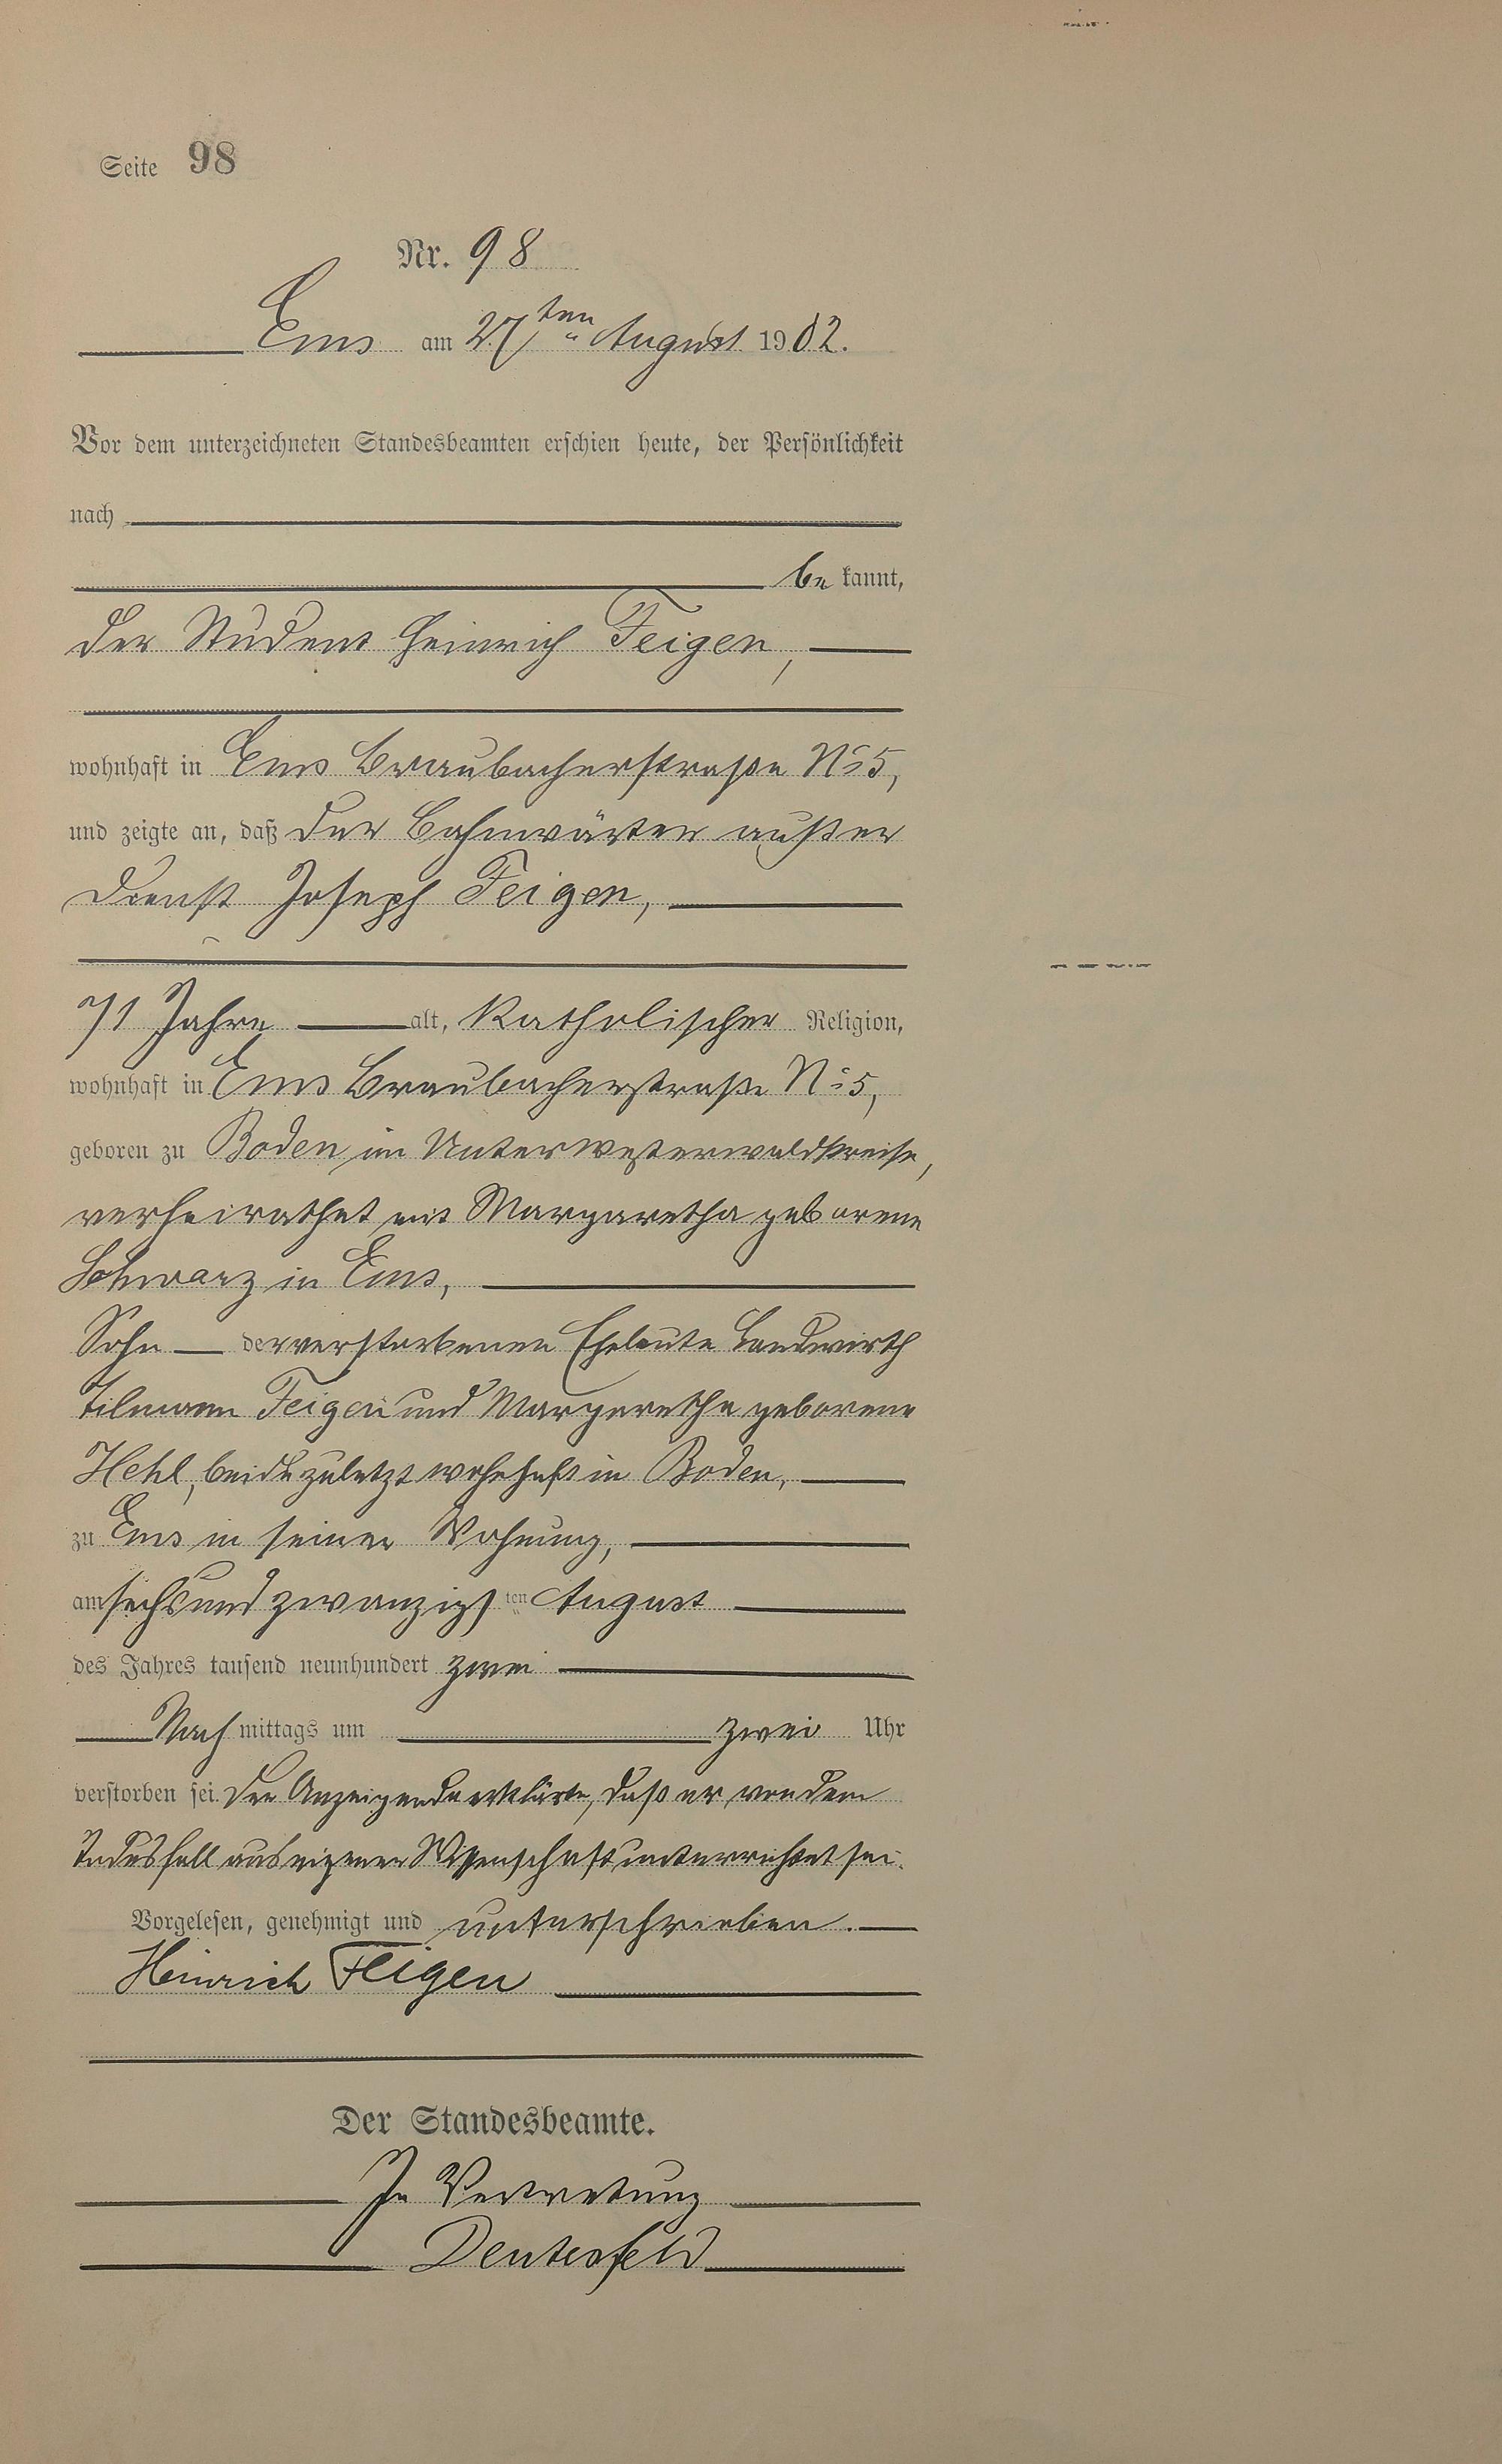 Seite 98
Nr. 98
Ems am 27ten August 1902.
Vor dem unterzeichneten Standesbeamten erschien heute, der Persönlichkeit
nach
be kannt,
der Student Heinrich Feigen,
wohnhaft in Ems Braubacherstraße No 5,
und zeigte an, daß der Bahnwärter außer
Dienst Joseph Feigen,
71 Jahre alt, katholischer Religion,
wohnhaft in Ems Braubacherstraße No 5,
geboren zu Boden im Unterwesterwaldkreise,
verheirathet mit Margaretha geborene
Schwarz in Ems,
Sohn der verstorbenen Eheleute Landwirth
Tilmann Feigen und Margaretha geborene
Hehl, beide zuletzt wohnhaft in Boden,
zu Ems in seiner Wohnung,
am sechsundzwanzigsten August
des Jahres tausend neunhundert zwei
Nach mittags um zwei Uhr
verstorben sei. Der Anzeigende erklärte, daß er von dem
Todesfall aus eigener Wissenschaft unterrichtet sei.
Vorgelesen, genehmigt und unterschrieben.
Heinrich Feigen
Der Standesbeamte.
In Vertretung